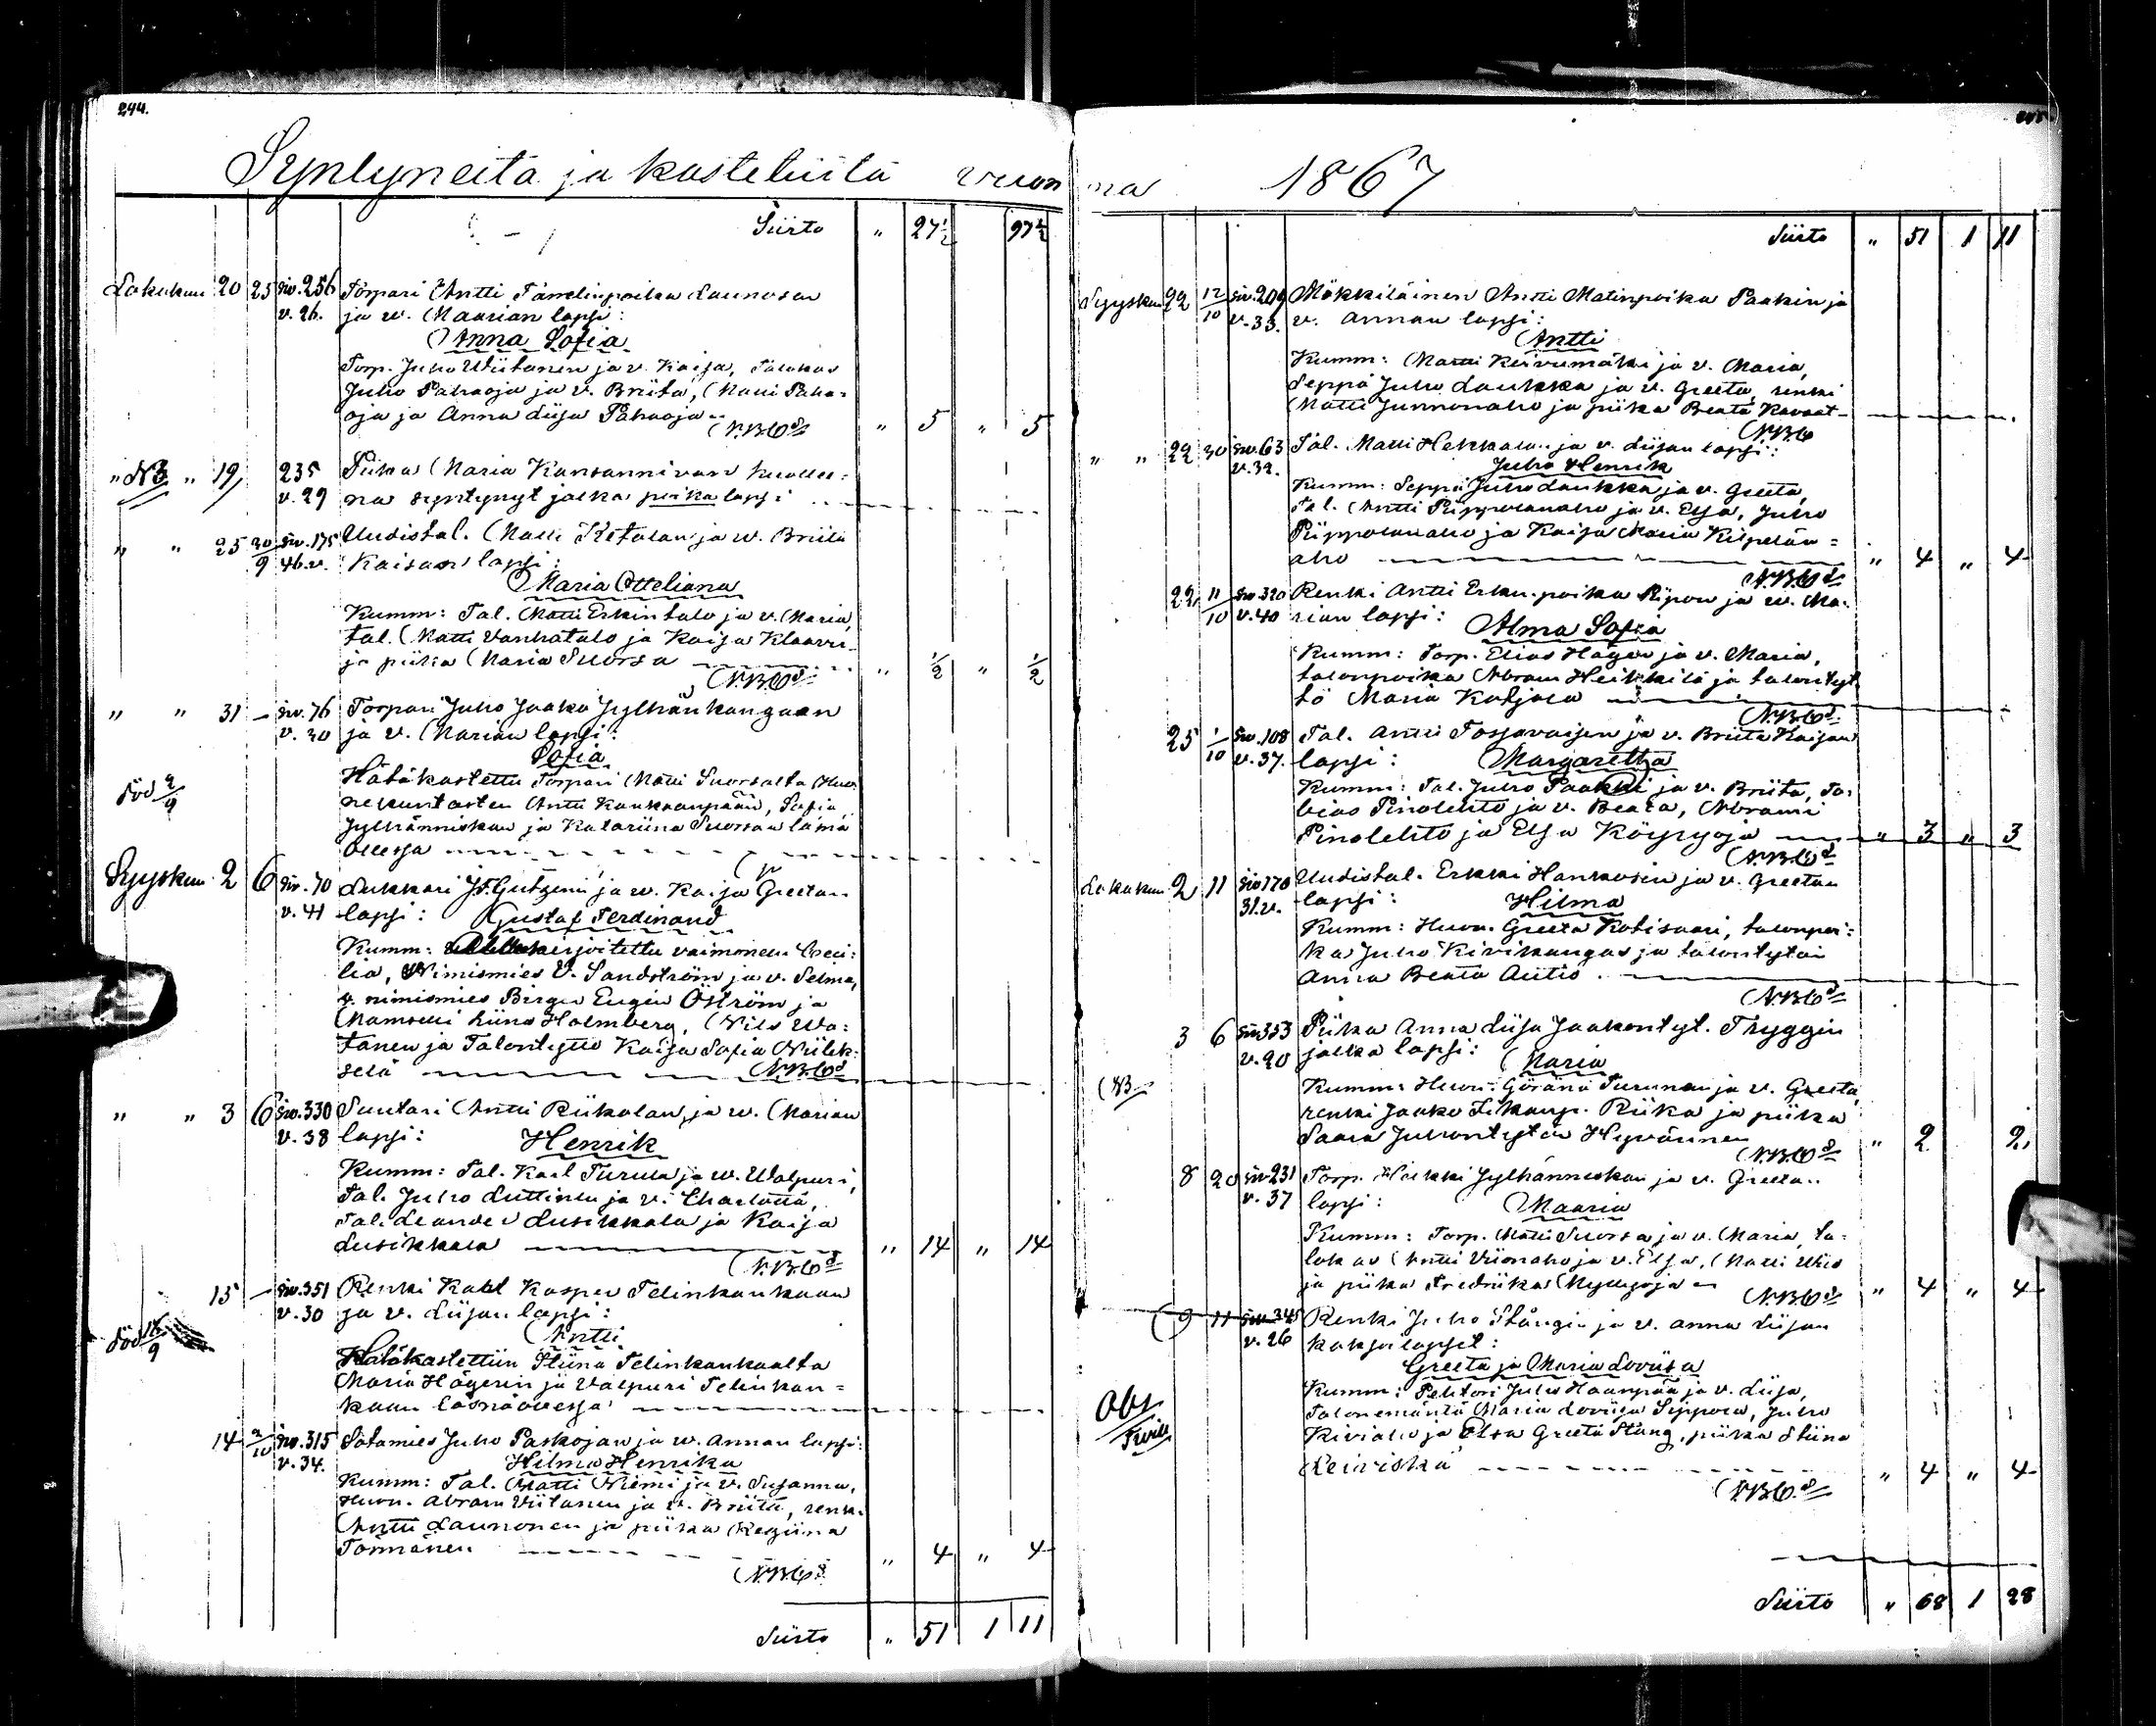 244.
Syntyneitä ja kastetuita vuon
Siirto " 27 1/2 97 1/2
Lokakuu 20 25 siv. 256 Torpari Antti Launosen
v. 26. ja v. Maarian lapsi:
Anna Sofia
Torp. Juho Wiitanen ja v. Kaisa,
Juho Pahaoja ja v. Briita, Matti Paha=
oja ja Anna Liisa Pahaoja
N.B.C-d " 5 " 5
" NB " 19 235 Piika Maria Kansannivan kuollee=
v. 29 na syntynyt jalka poika lapsi
" " 25 30/9 siv. 175 Uudistal. Matti Ketolan ja v. Briita
46.v. Kaisan lapsi:
Maria Otteliana
Kumm: Tal. Matti Erkintalo ja v. Maria,
tal. Matti Vanhatalo ja Kaisa
ja piika Maria Suorsa " 1/2 " 1/2
N.B.C-d
" " 31 – siv. 76 Torpari Juho Jaako Jylhänkangaan
v. 30 ja v. Marian lapsi:
Sofia
Hätäkastettu Torpari Matti Suorsalta
född 2/9 Antti Kankaanpään, Sofia
Jylhänniskan ja Katariina Suorsan läsnä
ollessa
Syyskuu 2 6 siv. 70 Lukkari ja v. Kaisa Greetan
v. 41 lapsi: Gustaf Ferdinand
Kumm: vaimoneen Ceci:
lia, Nimismies V. Sandström ja v. Selma,
v. nimismies Birger Eugen Öström ja
Mamselli Liina Holmberg, Nils Wa:
tanen ja Talontyttö Kaisa Sofia Niilek:
selä N.B.C-d
" " 3 6 siv. 330 Suutari Antti Riikolan ja v. Marian
v. 38 lapsi: Henrik
Kumm: Tal. Karl Turula ja v. Walpuri,
Tal. Juho Luttinen ja v. Charlotta,
Tal. Leander Lusikkala ja Kaisa
Lusikkala " 14 " 14
N.B.C-d
13 – siv. 351 Renki Kalle Kasper Telinkankaan
v. 30 ja v. Liisan lapsi:
född /9 Antti
Hätäkastettiin Stiina Telinkankaalta
Maria Hägerin ja Valpuri Telinkan=
kaan läsnäollessa
14 2/10 siv. 315 Sotamies Juho Paskojan ja v. Annan lapsi:
v. 34. Hilma Henrika
Kumm: Tal. Matti Niemi ja v. Susanna,
Huon. Abram Viitanen ja v. Briita, renki
Antti Launonen ja piika Regina
Törmänen " 4 " 4
N.B.C-d
Siirto " 51 1 11
245
na 1867
Siirto " 51 1 11
Syyskuu 22 12/10 siv. 209 Mökkiläinen Antti Matinpoika Paakin ja
v. 33. v. Annan lapsi:
Antti
Kumm: Martti Keirumäki ja v. Maria,
Seppä Juho Laukka ja v. Greeta, renki
Matti Junnonaho ja piika Beata
N.B.C
" " 22 30 siv. 63 Tal. Matti Hekkalan ja v. Liisan lapsi:
v. 32. Juho Henrik
Kumm: Seppä Juho Laukka ja v. Greeta,
Tal. Antti Piippolanaho ja v. Elsa, Juho
Piippolanaho ja Kaisa Maria Kilpelän=
aho " 4 " 4
N.B.C-d
22, 11/10 siv. 320 Renki Antti Erkinpoika Ripon ja v. Ma:
v. 40 rian lapsi: Alma Sofia
Kumm: Torp. Elias Häger ja v. Maria,
talonpoika Abram Heikkilä ja talontyt
tö Maria Karjala
N.B.C-d
25 1/10 siv. 108 Tal. Antti ja v. Briita Kaisan
v. 37. lapsi: Margaretha
Kumm: Tal. Juho Paakki ja v. Briita, To:
bias Pinolehto ja v. Beata, Abrami
Pinolehto ja Elsa Köysyoja " 3 " 3
N.B.C-d
Lokakuu 2 11 siv 170 Uudistal. Erkki Hankosen ja v. Greetan
31.v. lapsi: Hilma
Kumm: Huon. Greeta Kotisaari, talonpoi:
ka Juho Kivikangas ja talontytär
Anna Beata Autio.
N.B.C-d
3 6 siv 353 Piika Anna Liisa Jaakontyt. Tryggin
v. 20 jalka lapsi:
NB Maria
Kumm: Huon. Göran Turunen ja v. Greeta,
renki Jaako Riika ja piika
Saara Juhontytär Hyvärinen " 2 2,
N.B.C-d
8 20 siv 231 Torp. Heikki Jylhänniskan ja v. Greetan
v. 37 lapsi: Maaria
Kumm: Torp. Matti Suorsa ja v. Maria, ta:
lokas Antti Viionaho ja v. Elsa, Matti
ja piika Fredrika Myllyoja " 4 " 4
N.B.C-d
9 11 siv 345 Renki Juho Stångin ja v. Anna Liisan
v. 26 kaksoislapset:
Greeta ja Maria Lovisa
Obs Kumm: Pehtori Juho Haanpää ja v. Liisa,
Talonemäntä Maria Lovisa Seppola, Juho
Kiviaho ja Elsa Greeta Stång, piika Stiina
Leiviskä " 4 " 4
N.B.C-d
Siirto " 68 1 28